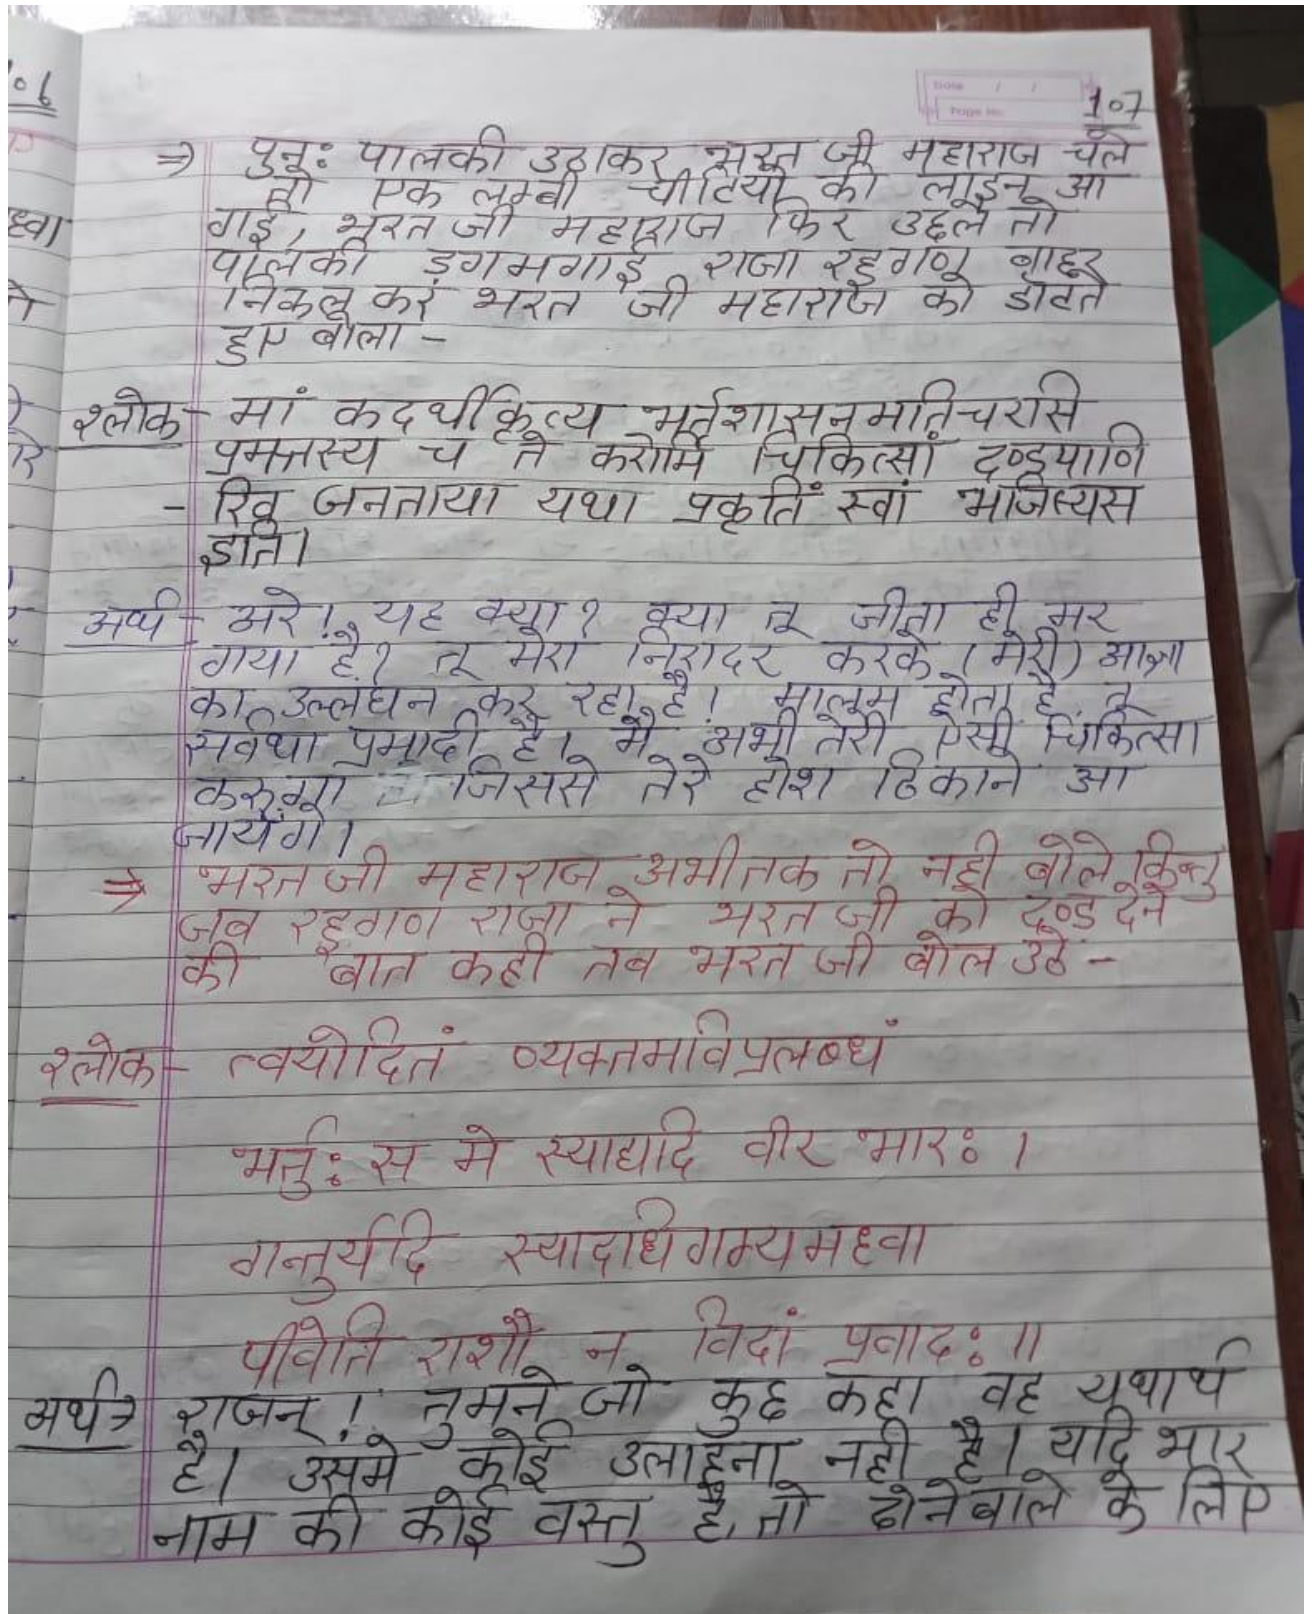 106
Date / /
Page No.
107
⇒ पुनः पालकी उठाकर भरत जी महाराज चले
तो एक लम्बी चीटियो की लाइन आ
गई, भरत जी महाराज फिर उछले तो
पालकी डगमगाई राजा रहुगण बाहर
निकल कर भरत जी महाराज को डाटते
हुए बोला -
श्लोक - मां कदर्थीकृत्य भर्तृशासनमतिचरसि
प्रमत्तस्य च ते करोमि चिकित्सां दण्डपाणि
- रिव जनताया यथा प्रकृतिं स्वां भजिस्यस
इति।
अर्थ - अरे! यह क्या? क्या तू जीता ही मर
गया है? तू मेरा निरादर करके (मेरी) आज्ञा
का उल्लंघन कर रहा है। मालूम होता है, तू
सर्वथा प्रमादी है। मै अभी तेरी एसी चिकित्सा
करुगा जिससे तेरे होश ठिकाने आ
जायेगे।
⇒ भरत जी महाराज अभीतक तो नही बोले किन्तु
जब रहुगण राजा ने भरत जी को दण्ड देने
की बात कही तब भरत जी बोल उठे -
श्लोक - त्वयोदितं व्यक्तमविप्रलब्धं
भर्तुः स मे स्याद्यदि वीर भारः ।
गन्तुर्यदि स्यादधिगम्यमध्वा
पीवेति राशौ न विदां प्रवादः ॥
अर्थ → राजन् ! तुमने जो कुछ कहा वह यथार्थ
है। उसमे कोई उलाहना नही है। यदि भार
नाम की कोई वस्तु है, तो ढोनेवाले के लिए